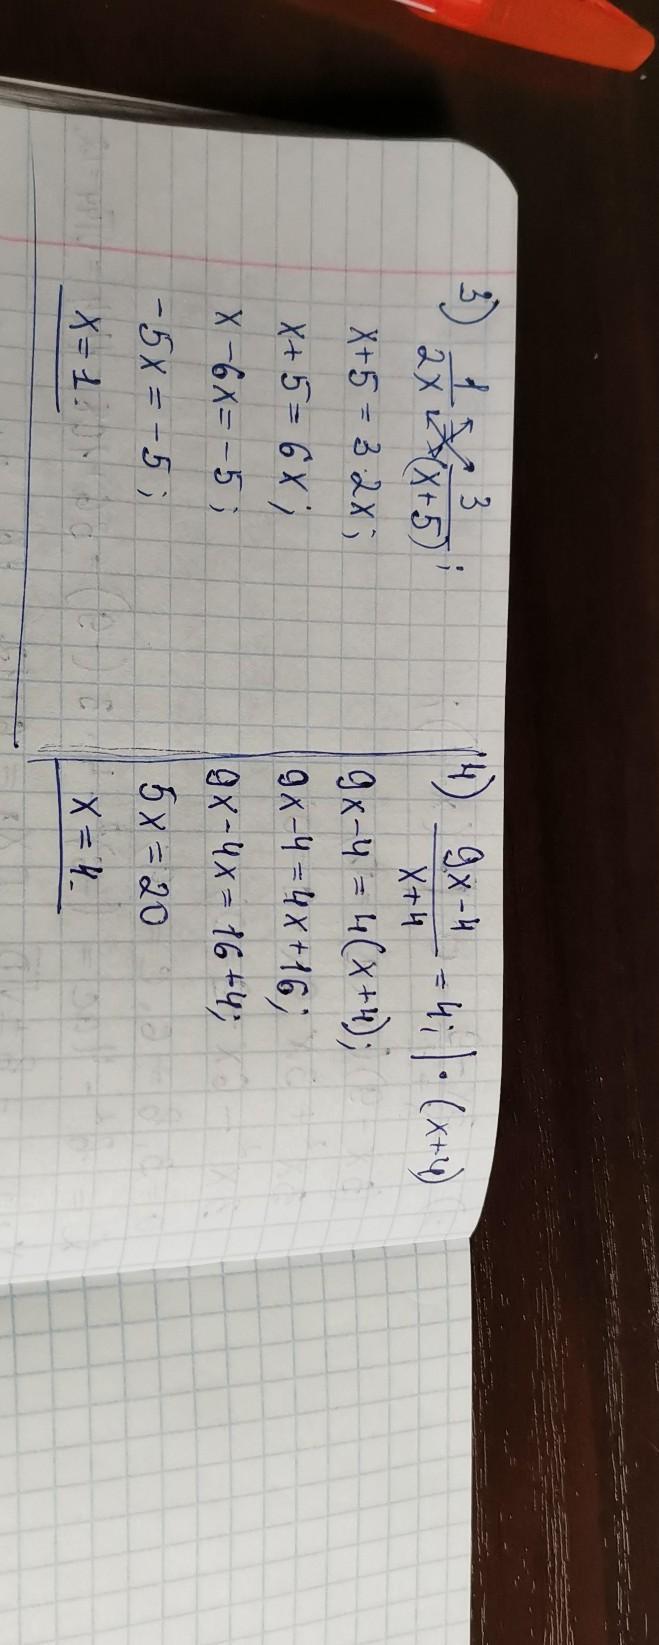 3) 1/2x = 3/(x+5);
x+5 = 3·2x;
x+5 = 6x;
x-6x = -5;
-5x = -5;
x = 1
4) 9x-4/x+4 = 4; | · (x+4)
9x-4 = 4(x+4);
9x-4 = 4x+16;
9x-4x = 16+4;
5x = 20
x = 4.